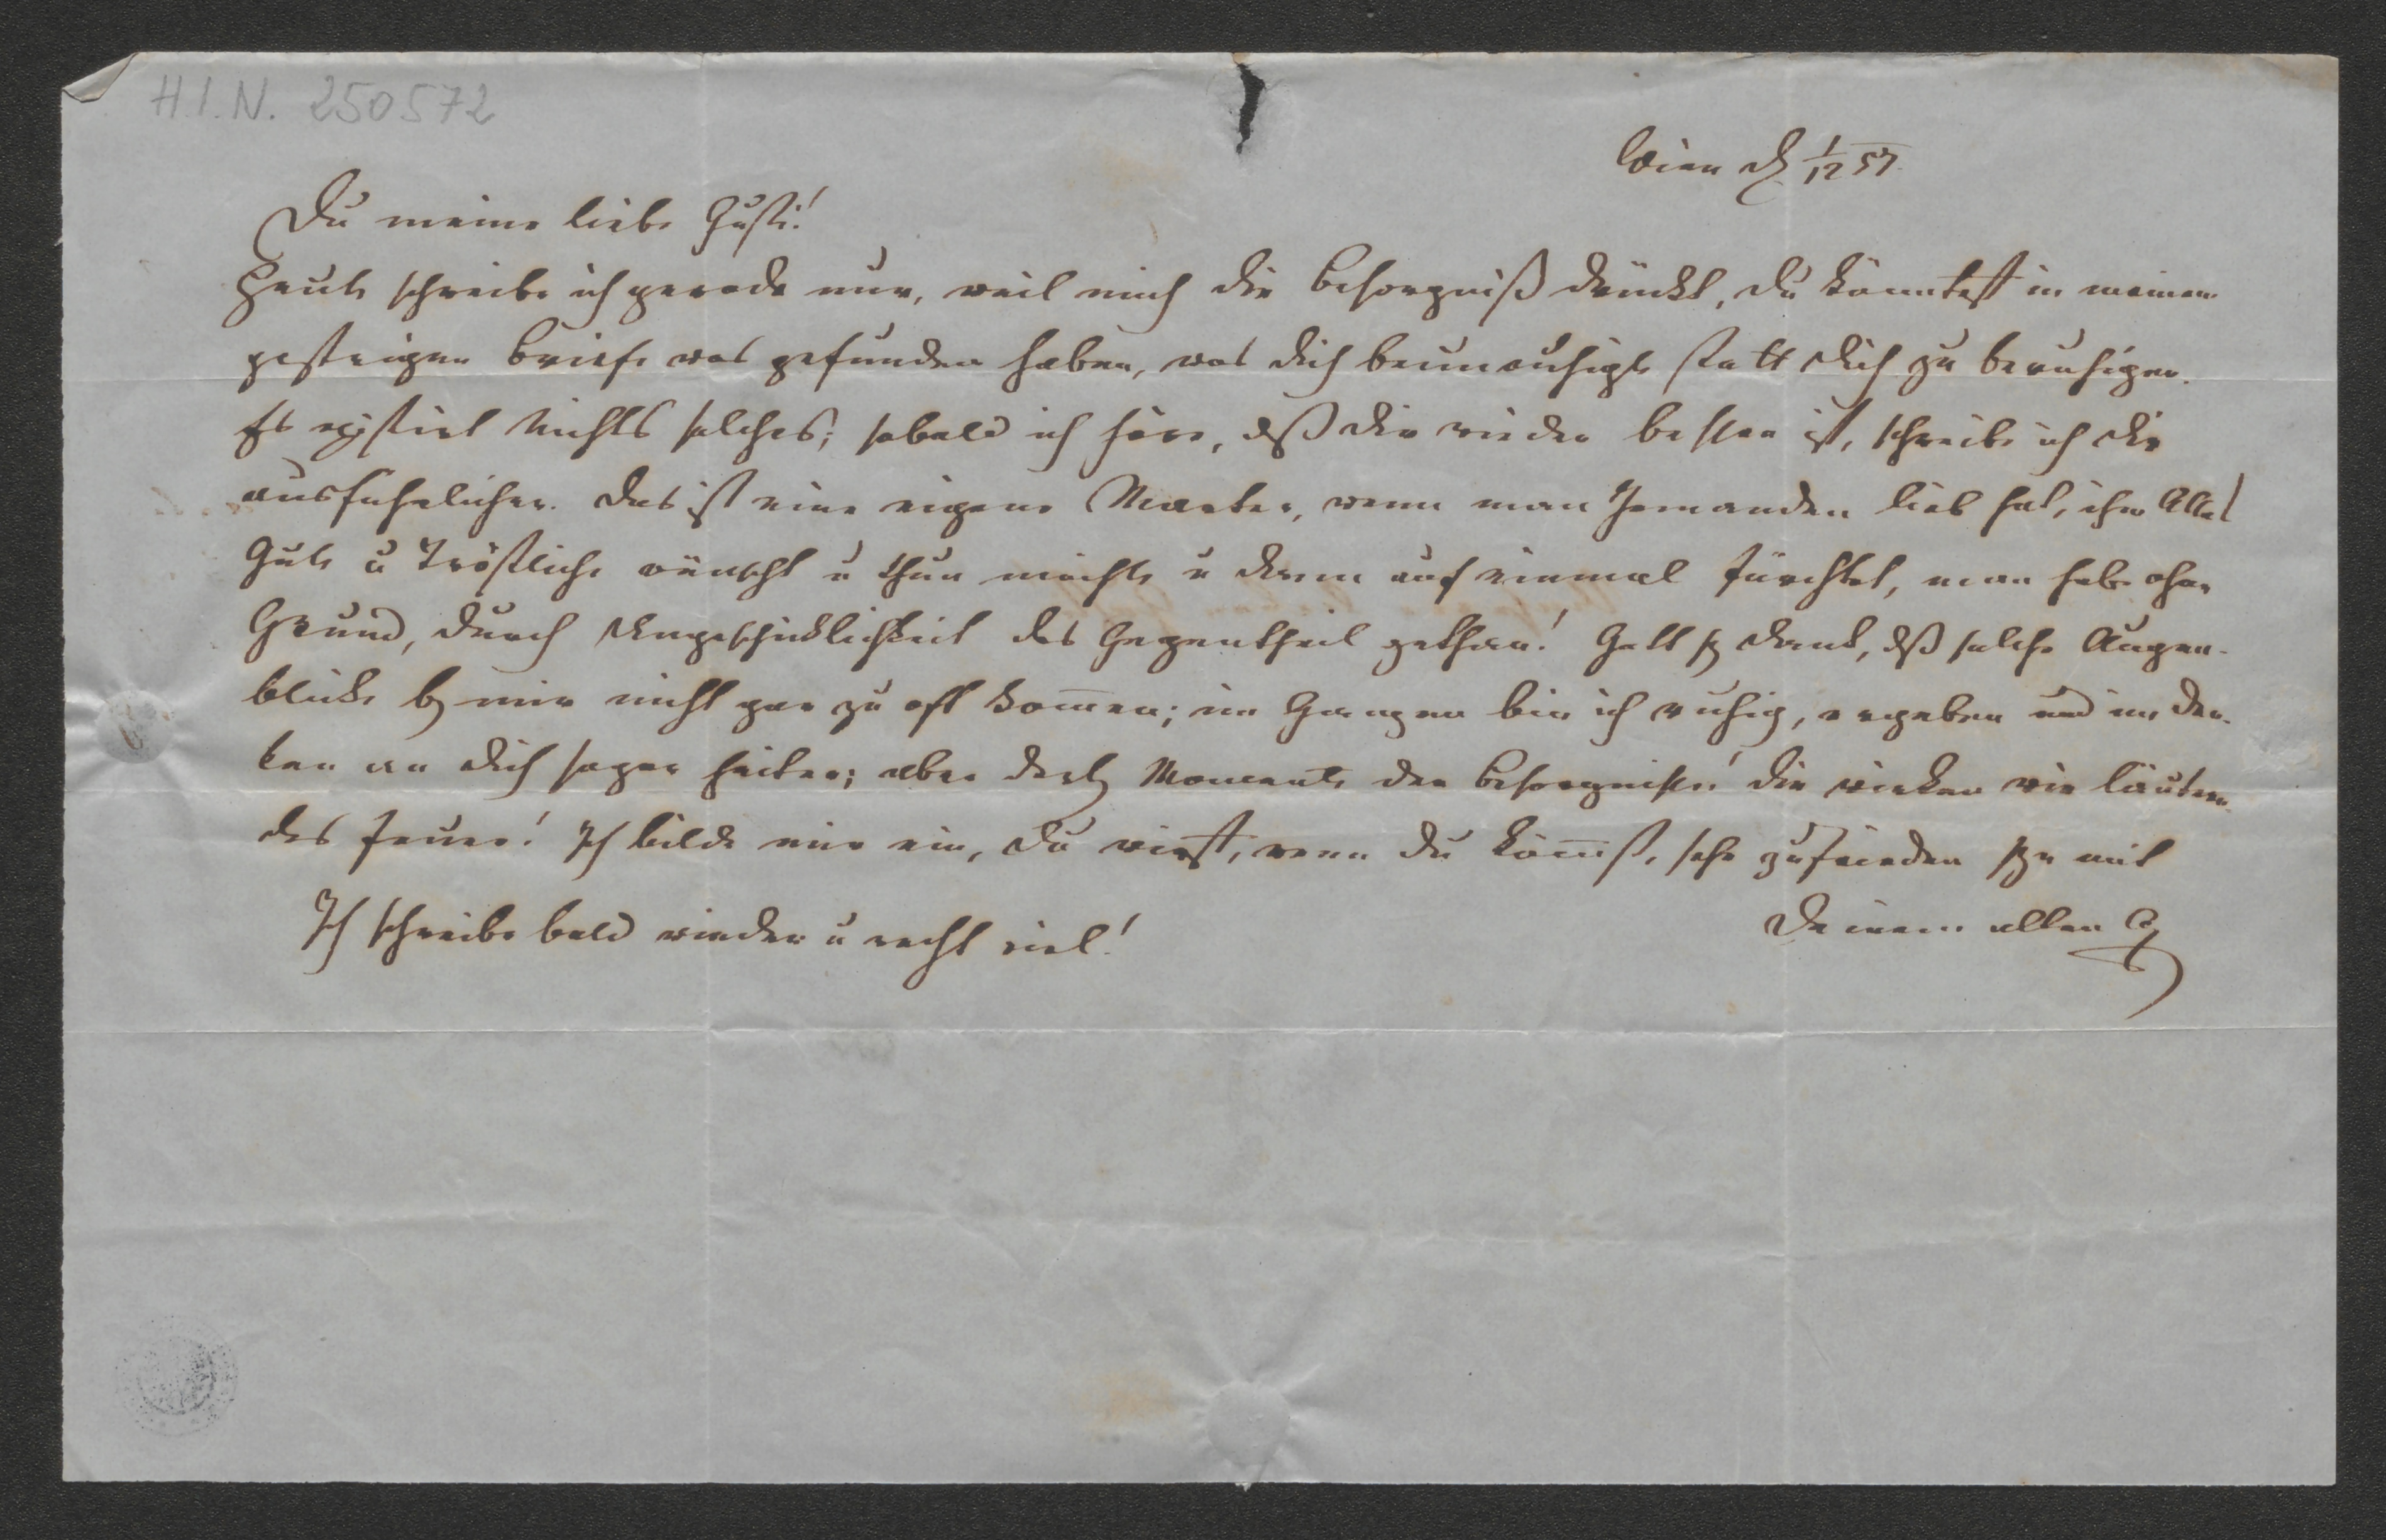 H.I.N. 250572
Wien d 1/12 57
Du meine liebe Gusti!
Heute schreibe ich gerade nur, weil mich die Besorgniß drückt, du könntest in meinem
gestrigen Briefe was gefunden haben, was dich beunruhigte statt dich zu beruhigen.
Es existirt Nichts solches; sobald ich höre, dß dir wieder besser ist, schreibe ich dir
ausführlicher. Das ist eine eigene Marter, wenn man Jemanden lieb hat, ihm Alles
Gute u Tröstliche wünscht u thun möchte u dann auf einmal fürchtet, man habe ohne
Grund, durch Ungeschicklichkeit das Gegentheil gethan! Gott sey Dank, dß solche Augen-
blicke bey mir nicht gar zu oft kom̅en; im Ganzen bin ich ruhig, ergeben und im Den-
ken an dich sogar heiter; aber Momente der Besorgnisse! die wirken wie läutern-
des Feuer! Ich bilde mir ein, du wirst, wenn du kom̅st, sehr zufrieden seyn mit
Ich schreibe bald wieder u recht viel!
Deinem alten